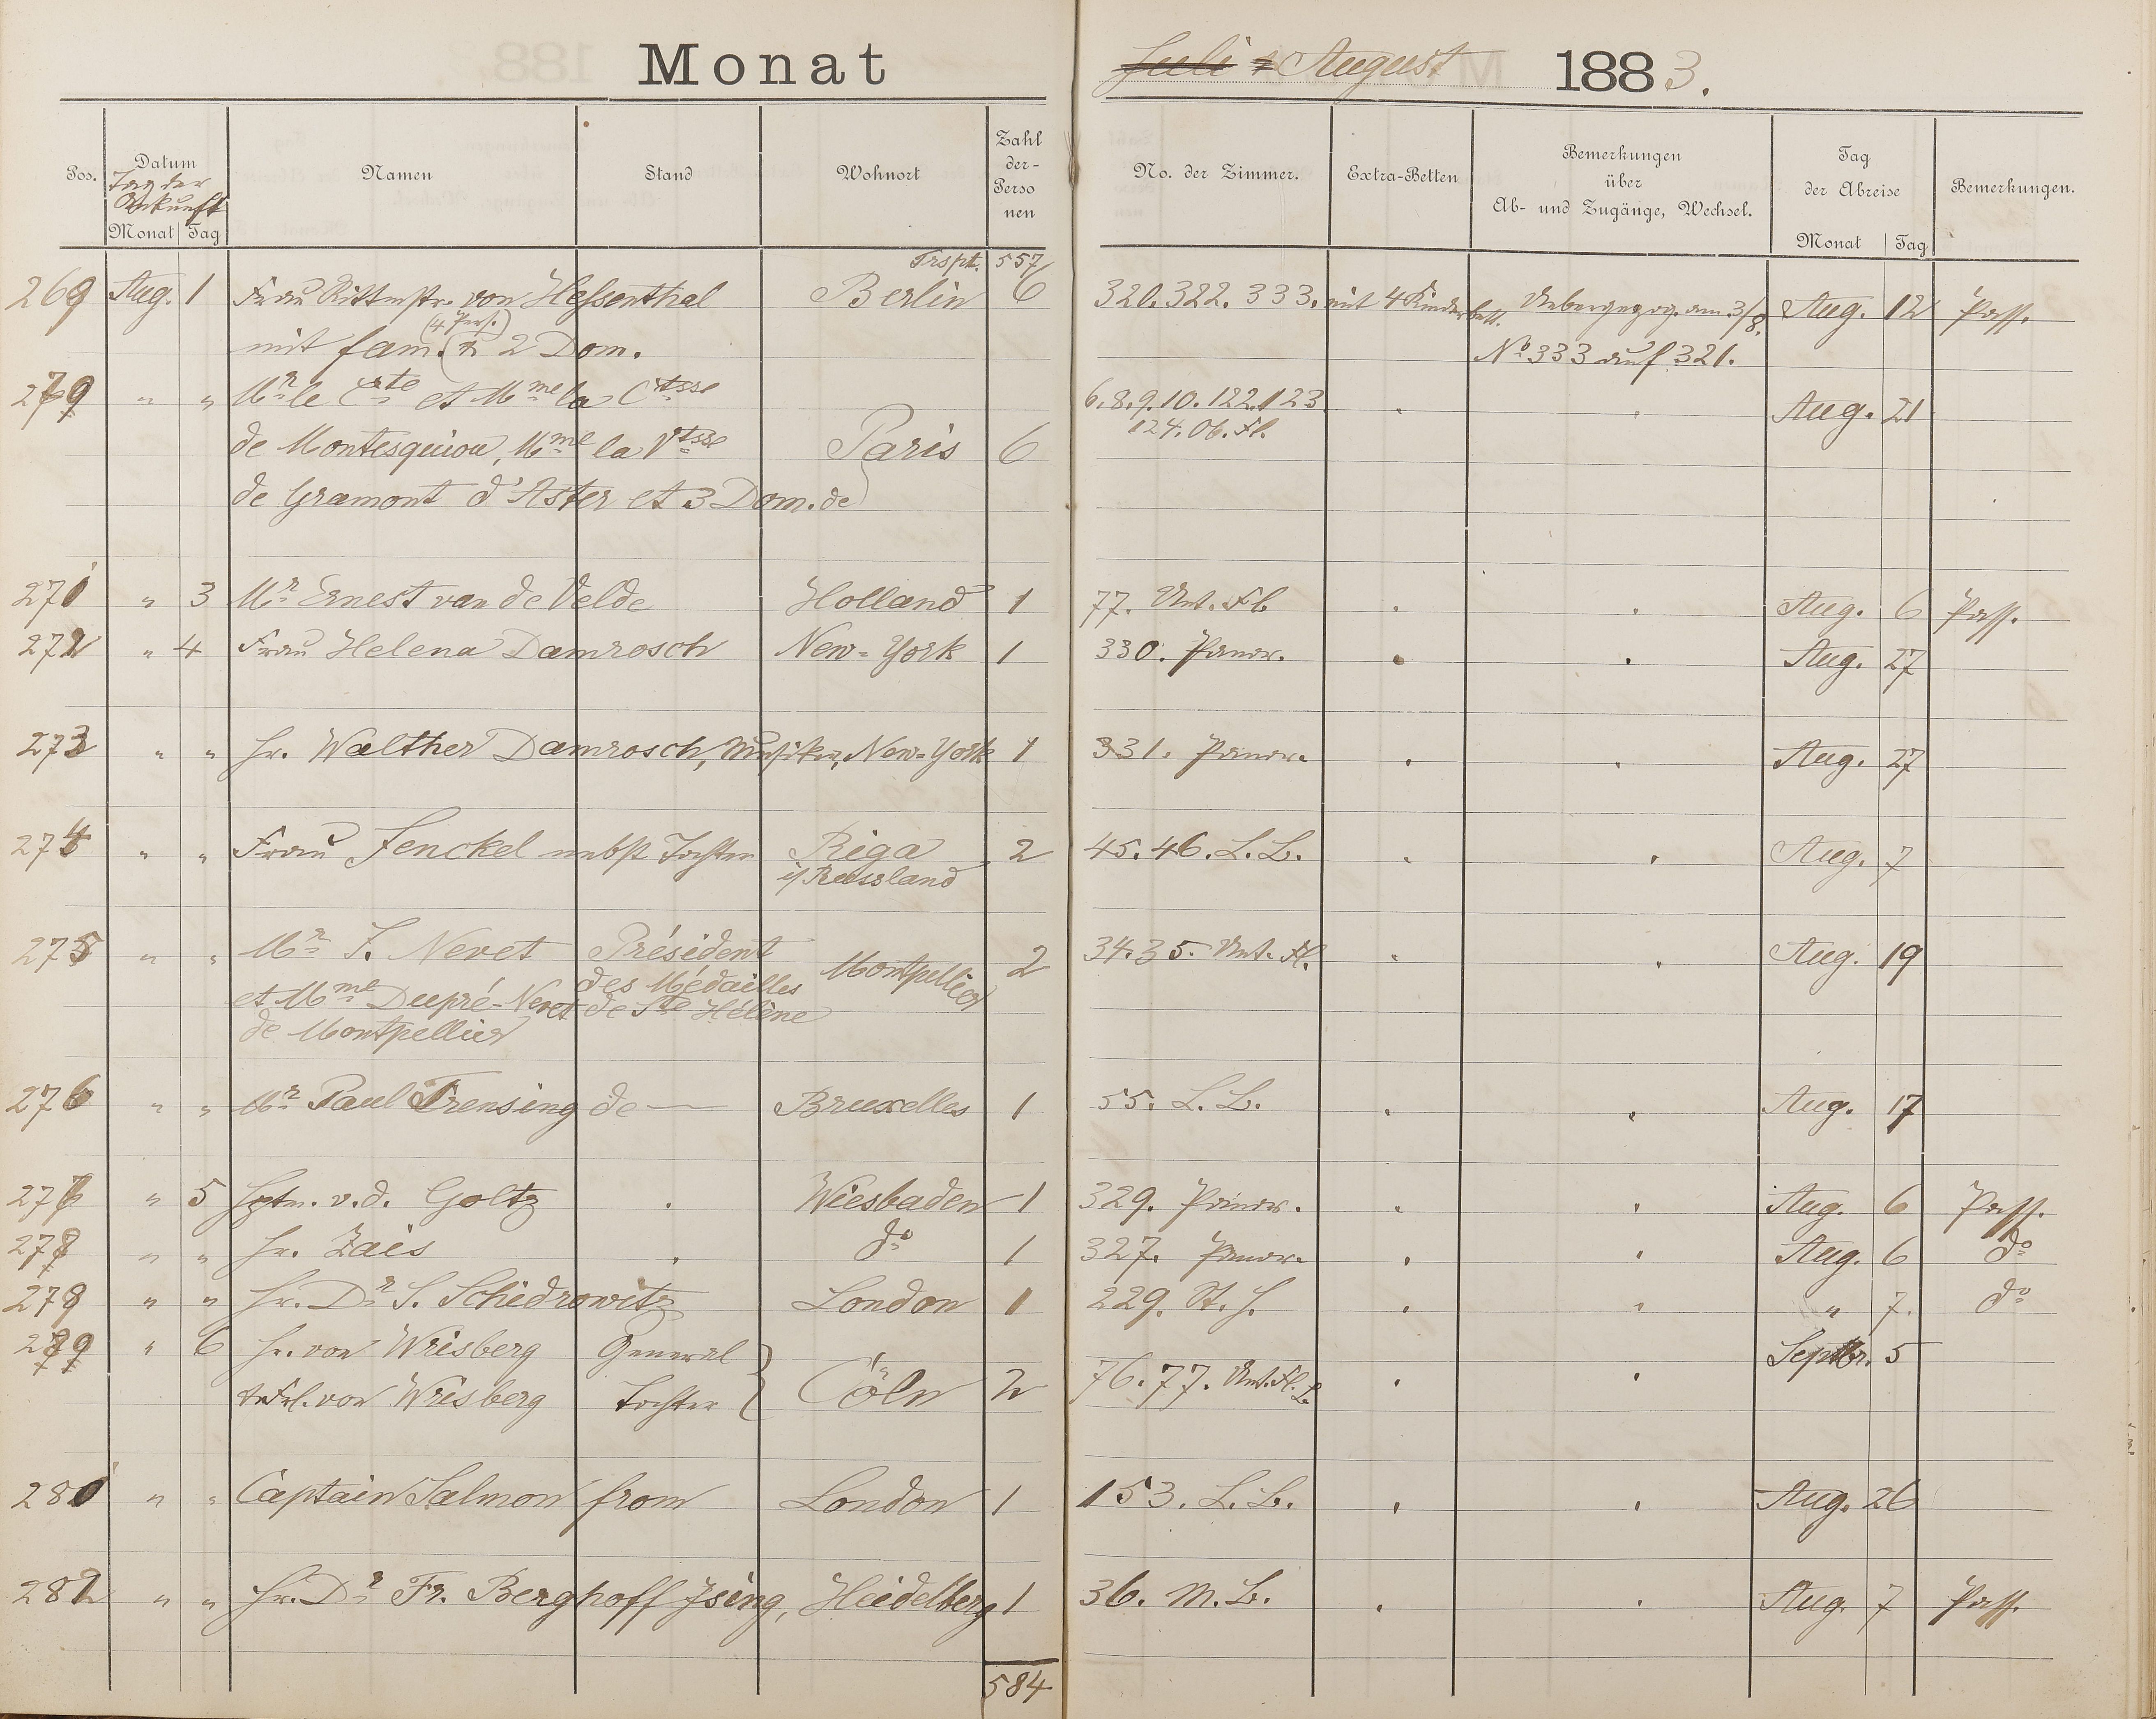 Monat Juli & August 1883.
Pos. Datum Namen Stand Wohnort Zahl der Personen No. der Zimmer. Extra-Betten Bemerkungen über Ab- und Zugänge, Wechsel. Tag der Abreise Bemerkungen.
Tag der Ankunft
Monat Tag Monat Tag
Trspt. 557
269 Aug. 1 Frau Rittmstr. von Hessenthal Berlin 6 320. 322. 333. mit 4 Kinderbett. Uebergezog. am 3/8. Aug. 12 Pass.
mit fam. (4 Pers.) & 2 Dom. No 333 auf 321.
270 " " Mr le Cte et Mme la Ctsse 6. 8. 9. 10. 122. 123. " " Aug. 21
124. Ob. Fl.
de Montesquiou, Mme la Vtsse Paris 6
de Gramont d'Aster et 3 Dom. de
271 " 3 Mr Ernest van de Velde Holland 1 77. Unt. Fl. " " Aug. 6 Pass.
272 " 4 Frau Helena Damrosch New-York 1 330. Panor. " " Aug. 27
273 " " Hr. Walther Damrosch, Musiker, New-York 1 331. Panor. " " Aug. 27
274 " " Frau Jenckel nebst Tochter Riga 2 45. 46. L. B. " " Aug. 7
i/ Russland
275 " " Mr J. Nevet Président Montpellier 2 34. 35. Unt. Fl. " " Aug. 19
des Médailles
et Mme Dupré-Nevet de Ste Hélène
de Montpellier
276 " " Mr Paul Frensing de — Bruxelles 1 55. L. B. " " Aug. 17
277 " 5 Hptm. v. d. Goltz " Wiesbaden 1 329. Panor. " " Aug. 6 Pass.
278 " " Hr. Zais " do 1 327. Panor. " " Aug. 6 do
279 " " Hr. Dr S. Schidrowitz London 1 229. St. H. " " " 7. do
280 " 6 Hr. von Wrisberg General Cöln 2 76. 77. Unt. Fl. L. " " Septbr. 5
& Frl. von Wrisberg Tochter
281 " " Captain Salmon from London 1 153. L. B. " " Aug. 26
282 " " Hr. Dr Fr. Berghoff Jsing, Heidelberg 1 36. M. B. " " Aug. 7 Pass.
584